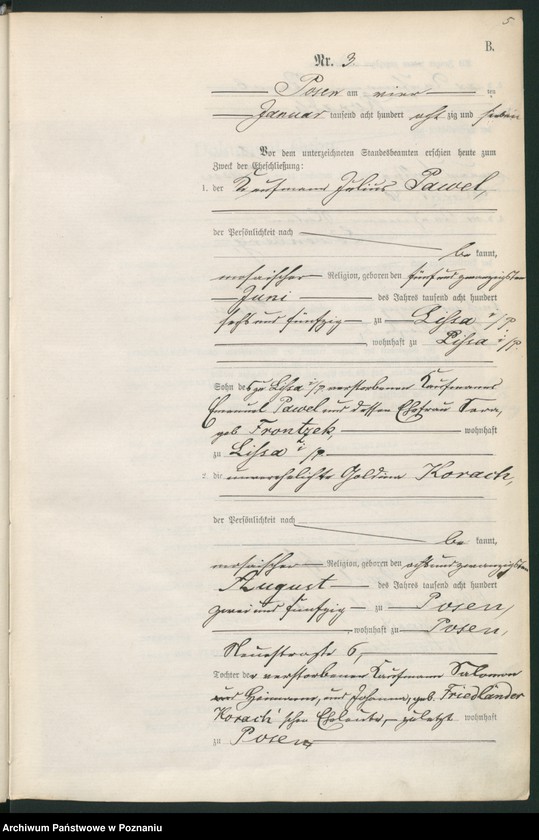 5
B.
Nr. 3.
Posen am vier ten
Januar tausend acht hundert acht zig und sieben
Vor dem unterzeichneten Standesbeamten erschien heute zum
Zweck der Eheschließung:
1. der Kaufmann Julius Pawel,
der Persönlichkeit nach
be kannt,
mosaischer Religion, geboren den fünf und zwanzigsten
Juni des Jahres tausend acht hundert
sechs und fünfzig zu Lissa i/p
, wohnhaft zu Lissa i/p.
Sohn des zu Lissa i/p verstorbenen Kaufmanns
Emanuel Pawel und dessen Ehefrau Sara,
geb. Frontzek, wohnhaft
zu Lissa i/p.
2. die unverehelichte Goldina Korach,
der Persönlichkeit nach
be kannt,
mosaischer Religion, geboren den acht und zwanzigsten
August des Jahres tausend acht hundert
zwei und fünfzig zu Posen,
, wohnhaft zu Posen,
Neuestraße 6,
Tochter der verstorbenen Kaufmann Salomon
und Johanna, geb. Friedländer
Korach'schen Eheleute, zuletzt wohnhaft
zu Posen
Archiwum Państwowe w Poznaniu